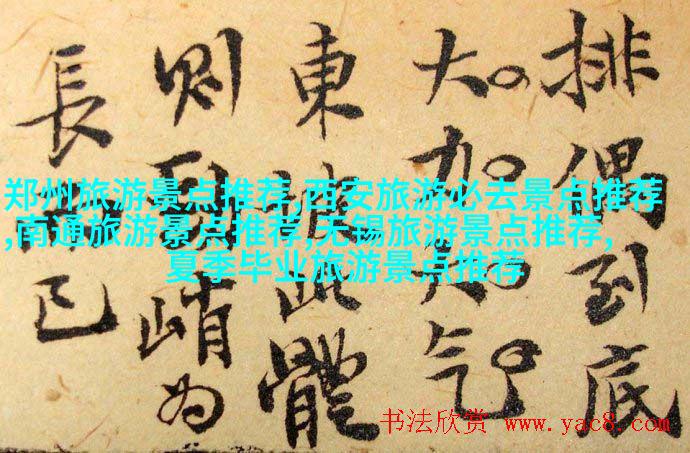 排偶到底
大大气
東坡此體
則峭为
長已
郑州旅游景点推荐,西安旅游必去景点推荐
,南通旅游景点推荐,无锡旅游景点推荐,
夏季毕业旅游景点推荐
书法欣赏 www.yac8.com